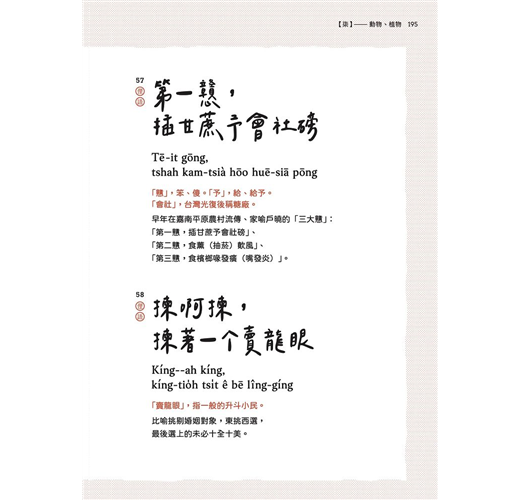 【柒】——動物、植物 195
57
俚語
第一戇，
插甘蔗予會社磅
Tē-it gōng,
tshah kam-tsià hōo huē-siā pōng
「戇」，笨、傻。「予」，給、給予。
「會社」，台灣光復後稱糖廠。
早年在嘉南平原農村流傳、家喻戶曉的「三大戇」：
「第一戇，插甘蔗予會社磅」、
「第二戇，食薰（抽菸）歕風」、
「第三戇，食檳榔喙發癀（嘴發炎）」。
58
俚語
揀啊揀，
揀著一个賣龍眼
Kíng--ah kíng,
kíng-tio̍h tsi̍t ê bē lîng-gíng
「賣龍眼」，指一般的升斗小民。
比喻挑剔婚姻對象，東挑西選，
最後選上的未必十全十美。